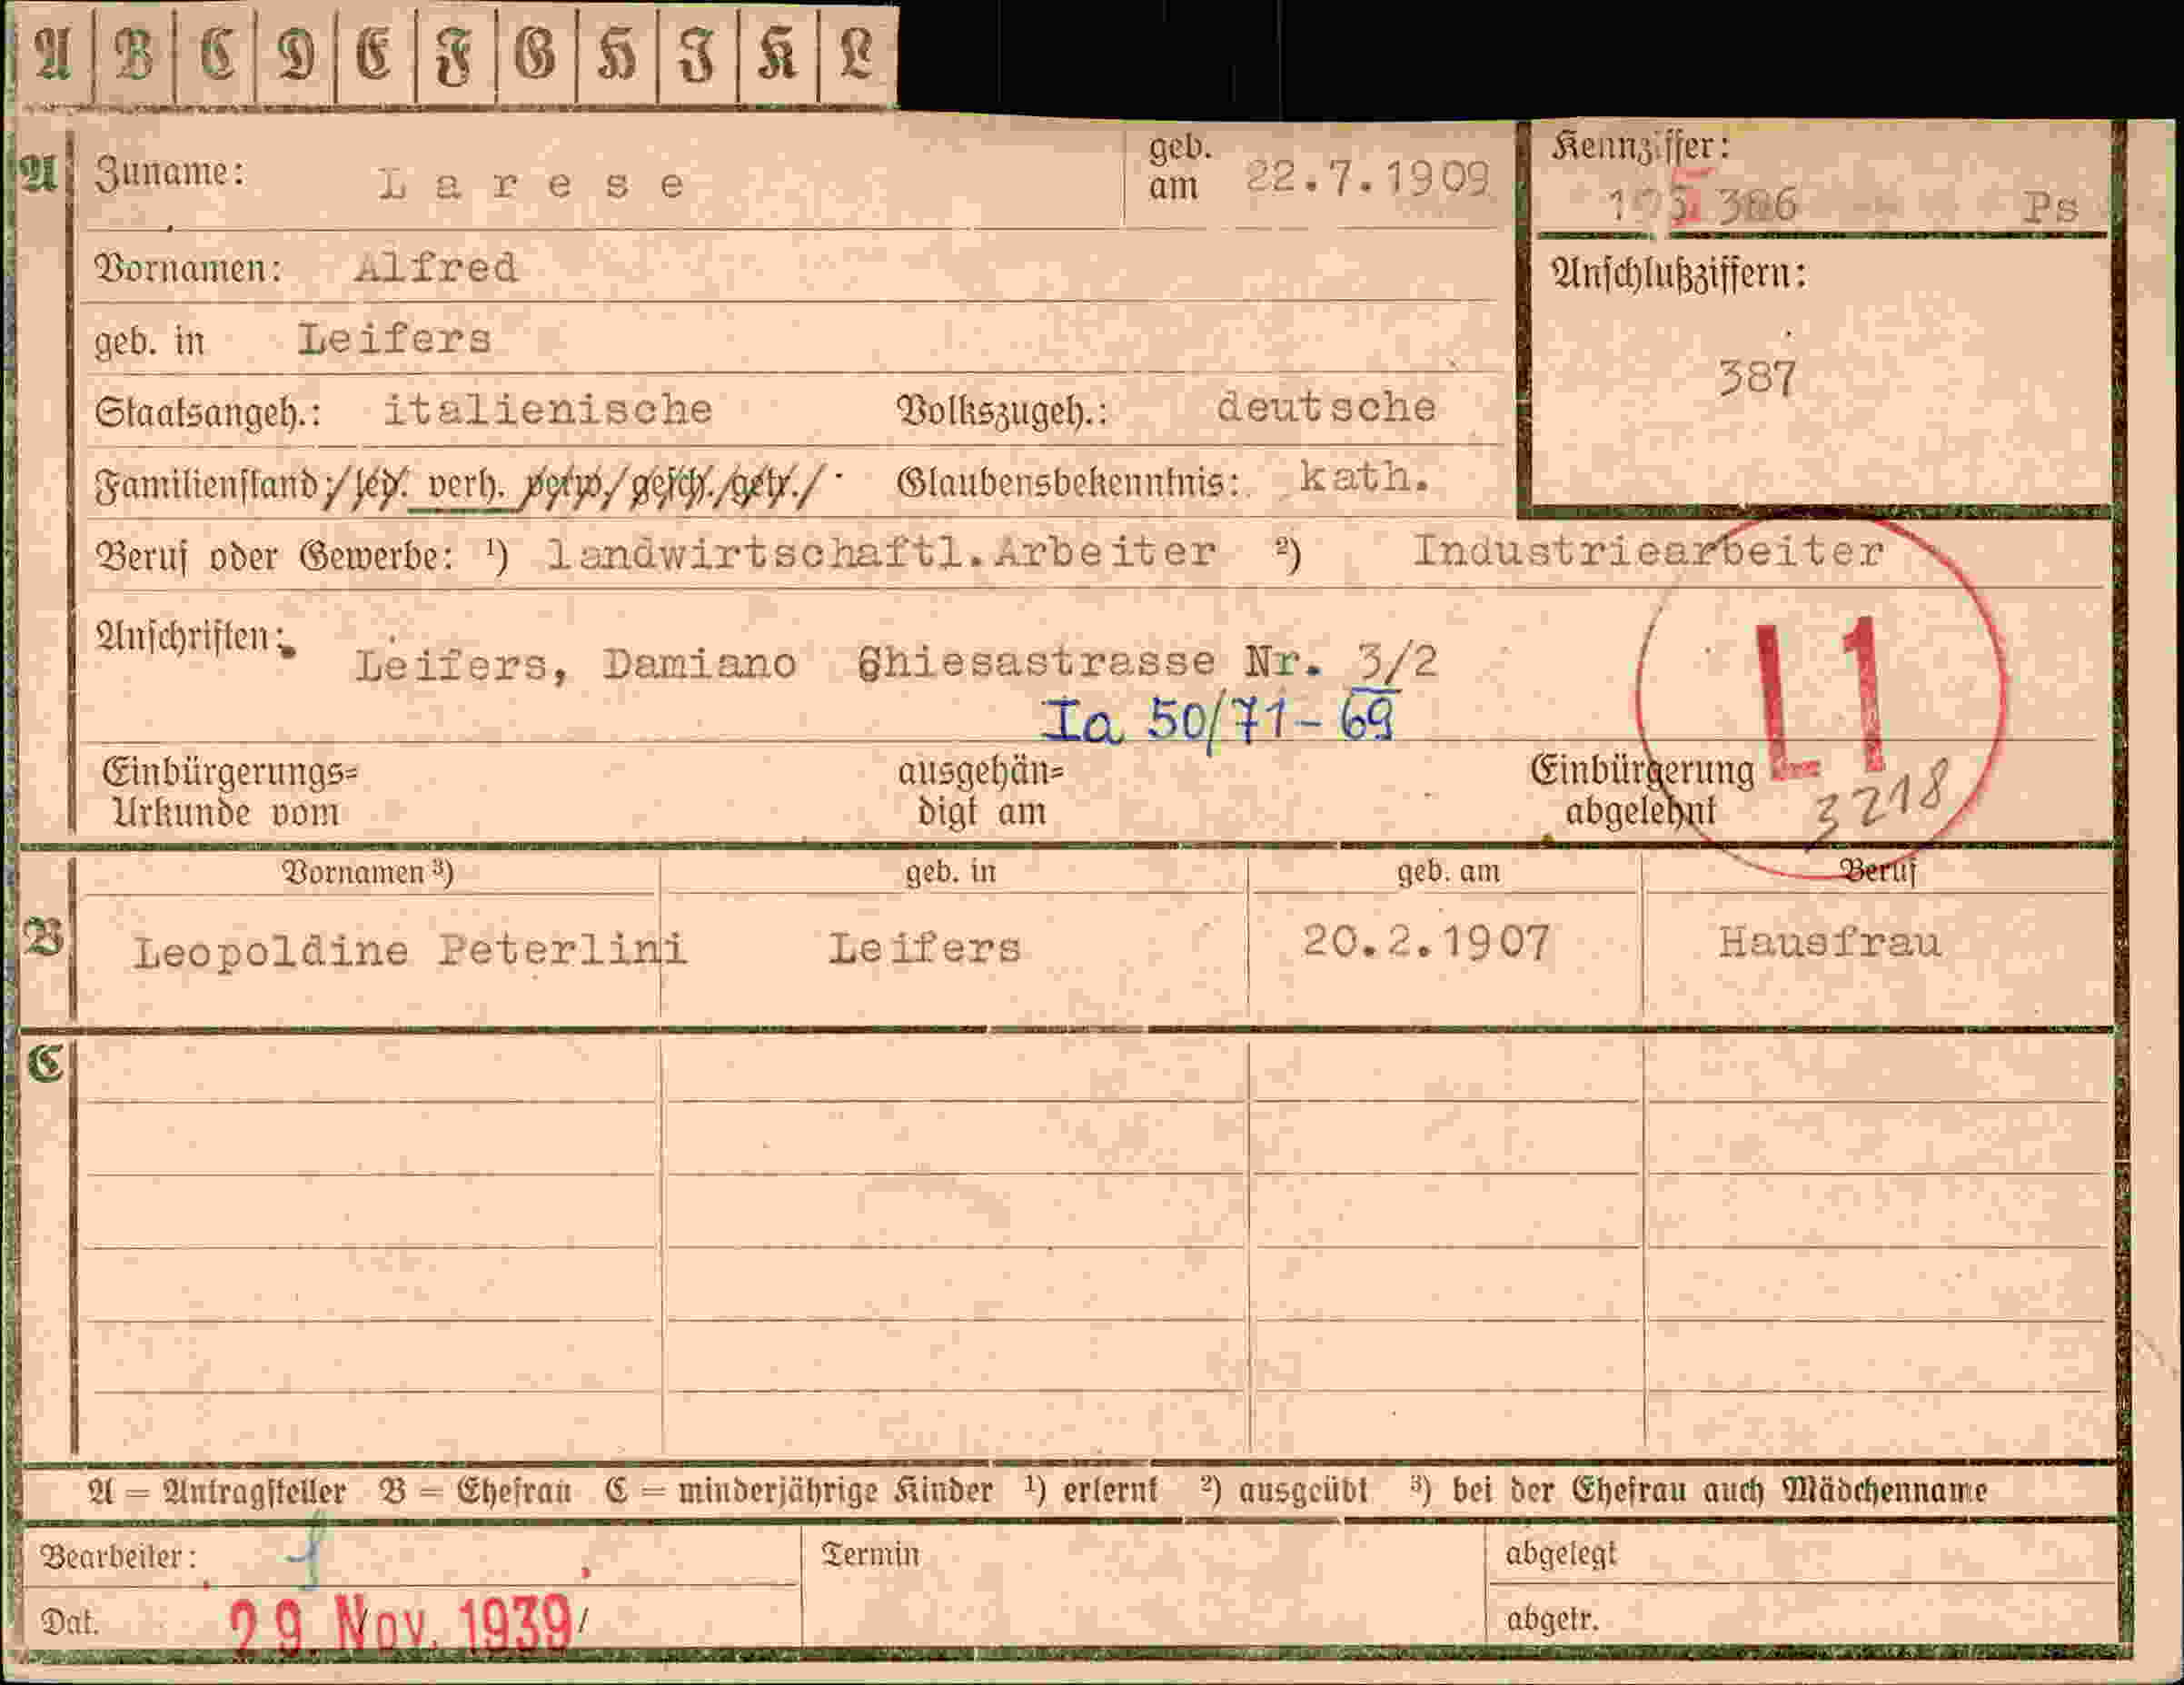 A B C D E F G H I K L
A Zuname: Larese geb. am 22.7.1909 Kennziffer:
306 Ps
Vornamen: Alfred Anschlußziffern:
geb. in Leifers
387
Staatsangeh.: italienische Volkszugeh.: deutsche
Familienstand: led. verh. verw. gesch. getr. Glaubensbekenntnis: kath.
Beruf oder Gewerbe: ¹) landwirtschaftl.Arbeiter ²) Industriearbeiter
Anschriften: Leifers, Damiano Chiesastrasse Nr. 3/2
L1
Ia 50/71-69
Einbürgerungs= Urkunde vom ausgehän= digt am Einbürgerung abgelehnt
3218
Vornamen ³) geb. in geb. am Beruf
B Leopoldine Peterlini Leifers 20.2.1907 Hausfrau
C
A = Antragsteller B = Ehefrau C = minderjährige Kinder ¹) erlernt ²) ausgeübt ³) bei der Ehefrau auch Mädchenname
Bearbeiter: Termin abgelegt
Dat. 29. Nov. 1939 abgetr.